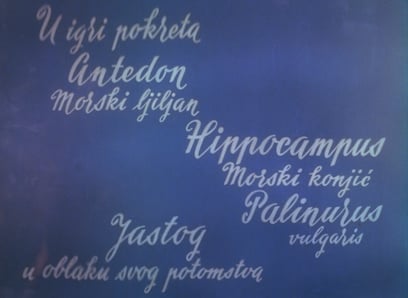 U igri pokreta
Antedon
Morski ljiljan
Hippocampus
Morski konjić
Palinurus
vulgaris
Jastog
u oblaku svog potomstva